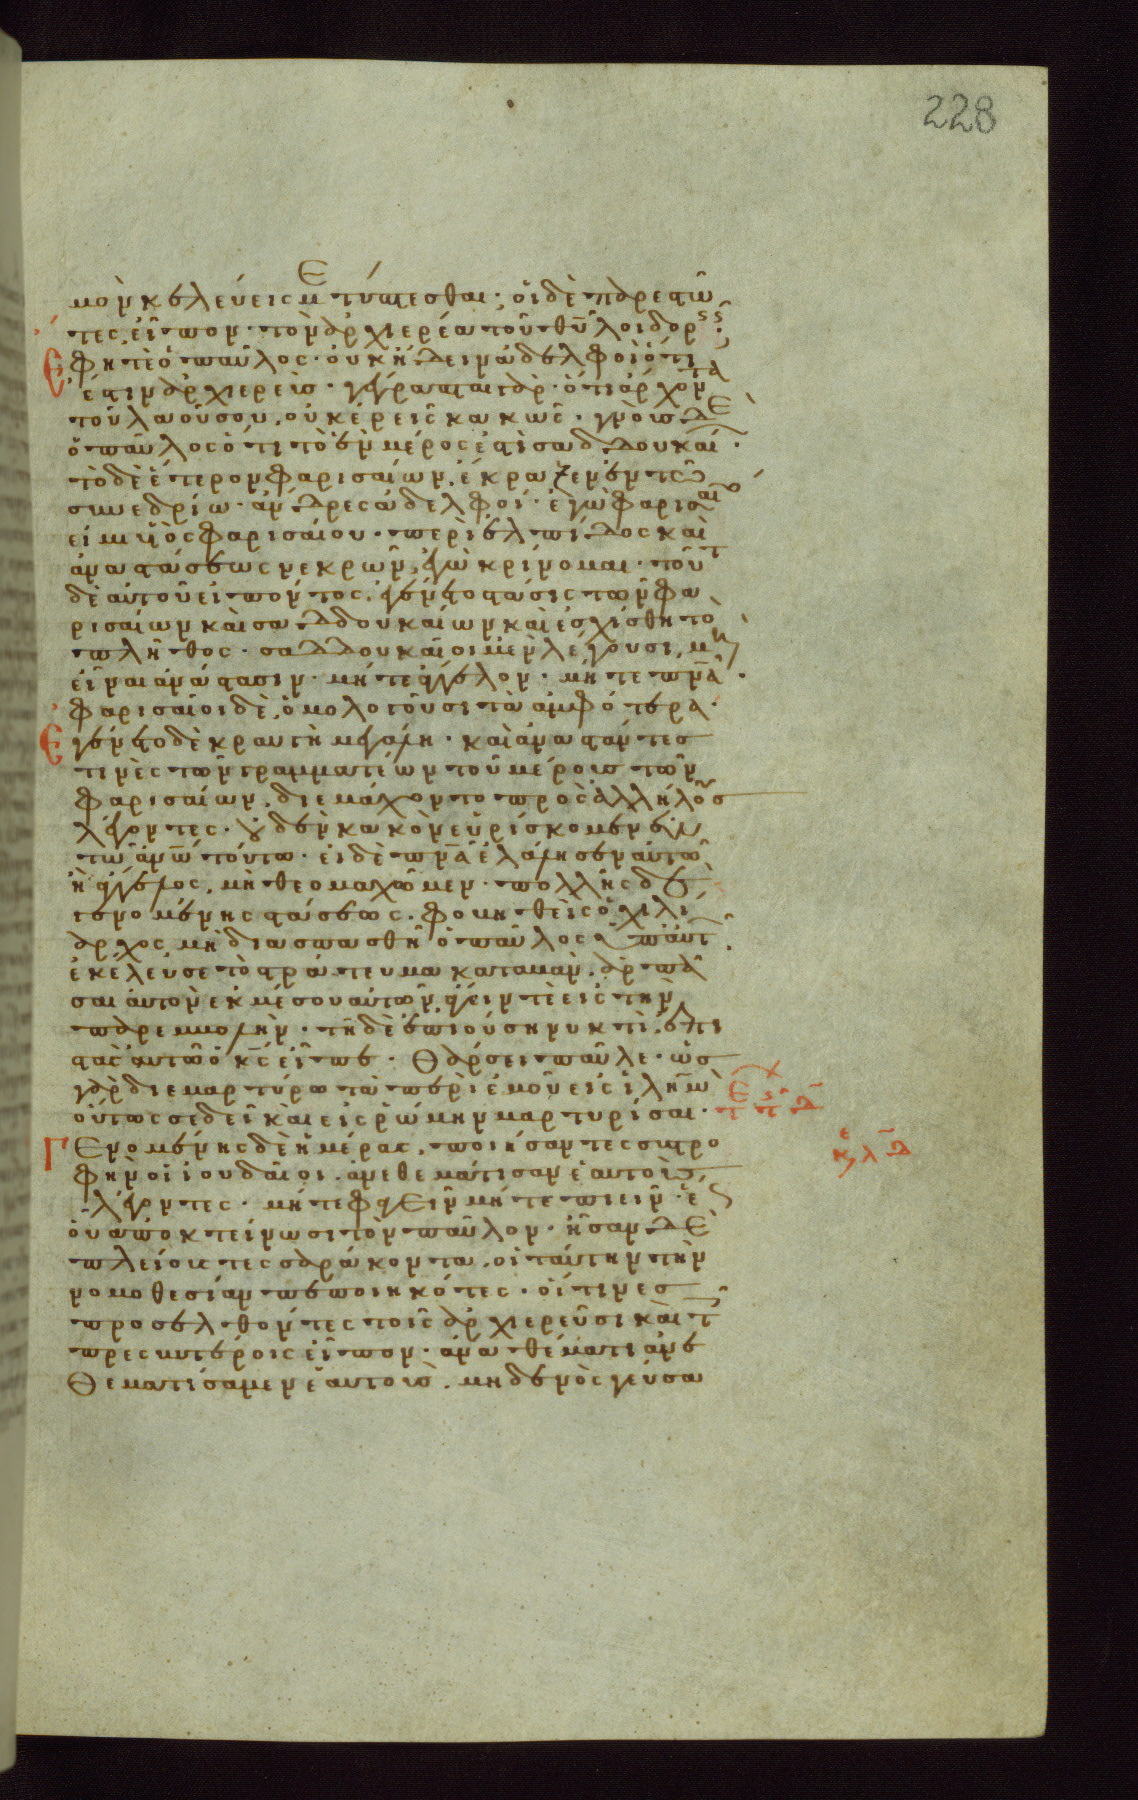 228
μον κελεύεις με τύπτεσθαι· οἱ δὲ παρεστῶ
τες εἶπον· τὸν ἀρχιερέα τοῦ θ̅υ̅ λοιδορεῖς;
Ἔφη τε ὁ παῦλος· οὐκ ἤδειν ἀδελφοὶ ὅτι
ἐστὶν ἀρχιερεύς· γέγραπται γὰρ· ὅτι ἄρχοντα
τοῦ λαοῦ σου, οὐκ ἐρεῖς κακῶς· γνοὺς δὲ
ὁ παῦλος ὅτι τὸ ἓν μέρος ἐστὶ σαδδουκαί·
τὸ δὲ ἕτερον φαρισαίων, ἔκραζεν ἐν τῶ
συνεδρίω· ἄνδρες ἀδελφοί· ἐγὼ φαρισαῖο
εἰμι υἱὸς φαρισαίου· περὶ ἐλπίδος καὶ
ἀναστάσεως νεκρῶν ἐγὼ κρίνομαι· τοῦτ
δὲ αὐτοῦ εἰπόντος, ἐγένετο στάσις τῶν φα
ρισαίων καὶ σαδδουκαίων καὶ ἐσχίσθη τὸ
πλῆθος· σαδδουκαῖοι μὲν λέγουσι, μὴ
εἶναι ἀνάστασιν· μήτε ἄγγελον· μήτε π̅ν̅α̅·
φαρισαῖοι δὲ, ὁμολογοῦσι τὰ ἀμφότερα·
Ἐγένετο δὲ κραυγὴ μεγάλη· καὶ ἀναστάντες
τινὲς τῶν γραμματέων τοῦ μέρους τῶν
φαρισαίων, διεμάχοντο πρὸς ἀλλήλους
λέγοντες· οὐδὲν κακὸν εὑρίσκομεν ἐν
τῶ ἀν̅ω̅ τούτω· εἰ δὲ π̅ν̅α̅ ἐλάλησεν αὐτῶ
ἢ ἄγγελος, μὴ θεομαχῶμεν· πολλῆς δὲ
γενομένης στάσεως, φοβηθεὶς ὁ χιλί
αρχος μὴ διασπασθῆ ὁ παῦλος ὑπ' αὐτ·
ἐκέλευσε τὸ στράτευμα καταβὰν, ἁρπά
σαι αὐτὸν ἐκ μέσου αὐτῶν, ἄγειν τὲ εἰς τὴν
παρεμβολήν· τῆ δὲ ἐπιούση νυκτὶ, ἐπι
στὰς αὐτῶ ὁ κ̅ς̅ εἶπε· Θάρσει παῦλε· ὡς
γὰρ διεμαρτύρω τὰ περὶ ἐμοῦ εἰς ἰλη̅μ̅
οὕτως σε δεῖ καὶ εἰς ῥώμην μαρτυρίσαι·
Γενομένης δὲ ἡμέρας, ποιήσαντες συστρο
φὴν οἱ ἰουδαῖοι, ἀνεθεμάτισαν ἑαυτοὺς,
λέγοντες· μήτε φαγεῖν μήτε πιεῖν· ἕως
οὗ ἀποκτείνωσι τὸν παῦλον· ἦσαν δὲ
πλείους τεσσαράκοντα, οἱ ταύτην τὴν
νομοθεσίαν πεποιηκότες· οἵτινες
προσελθόντες τοῖς ἀρχιερεῦσι καὶ τ
πρεσβυτέροις εἶπον· ἀναθέματι ἀνε
θεματίσαμεν ἑαυτοὺς, μηδενὸς γεύσα